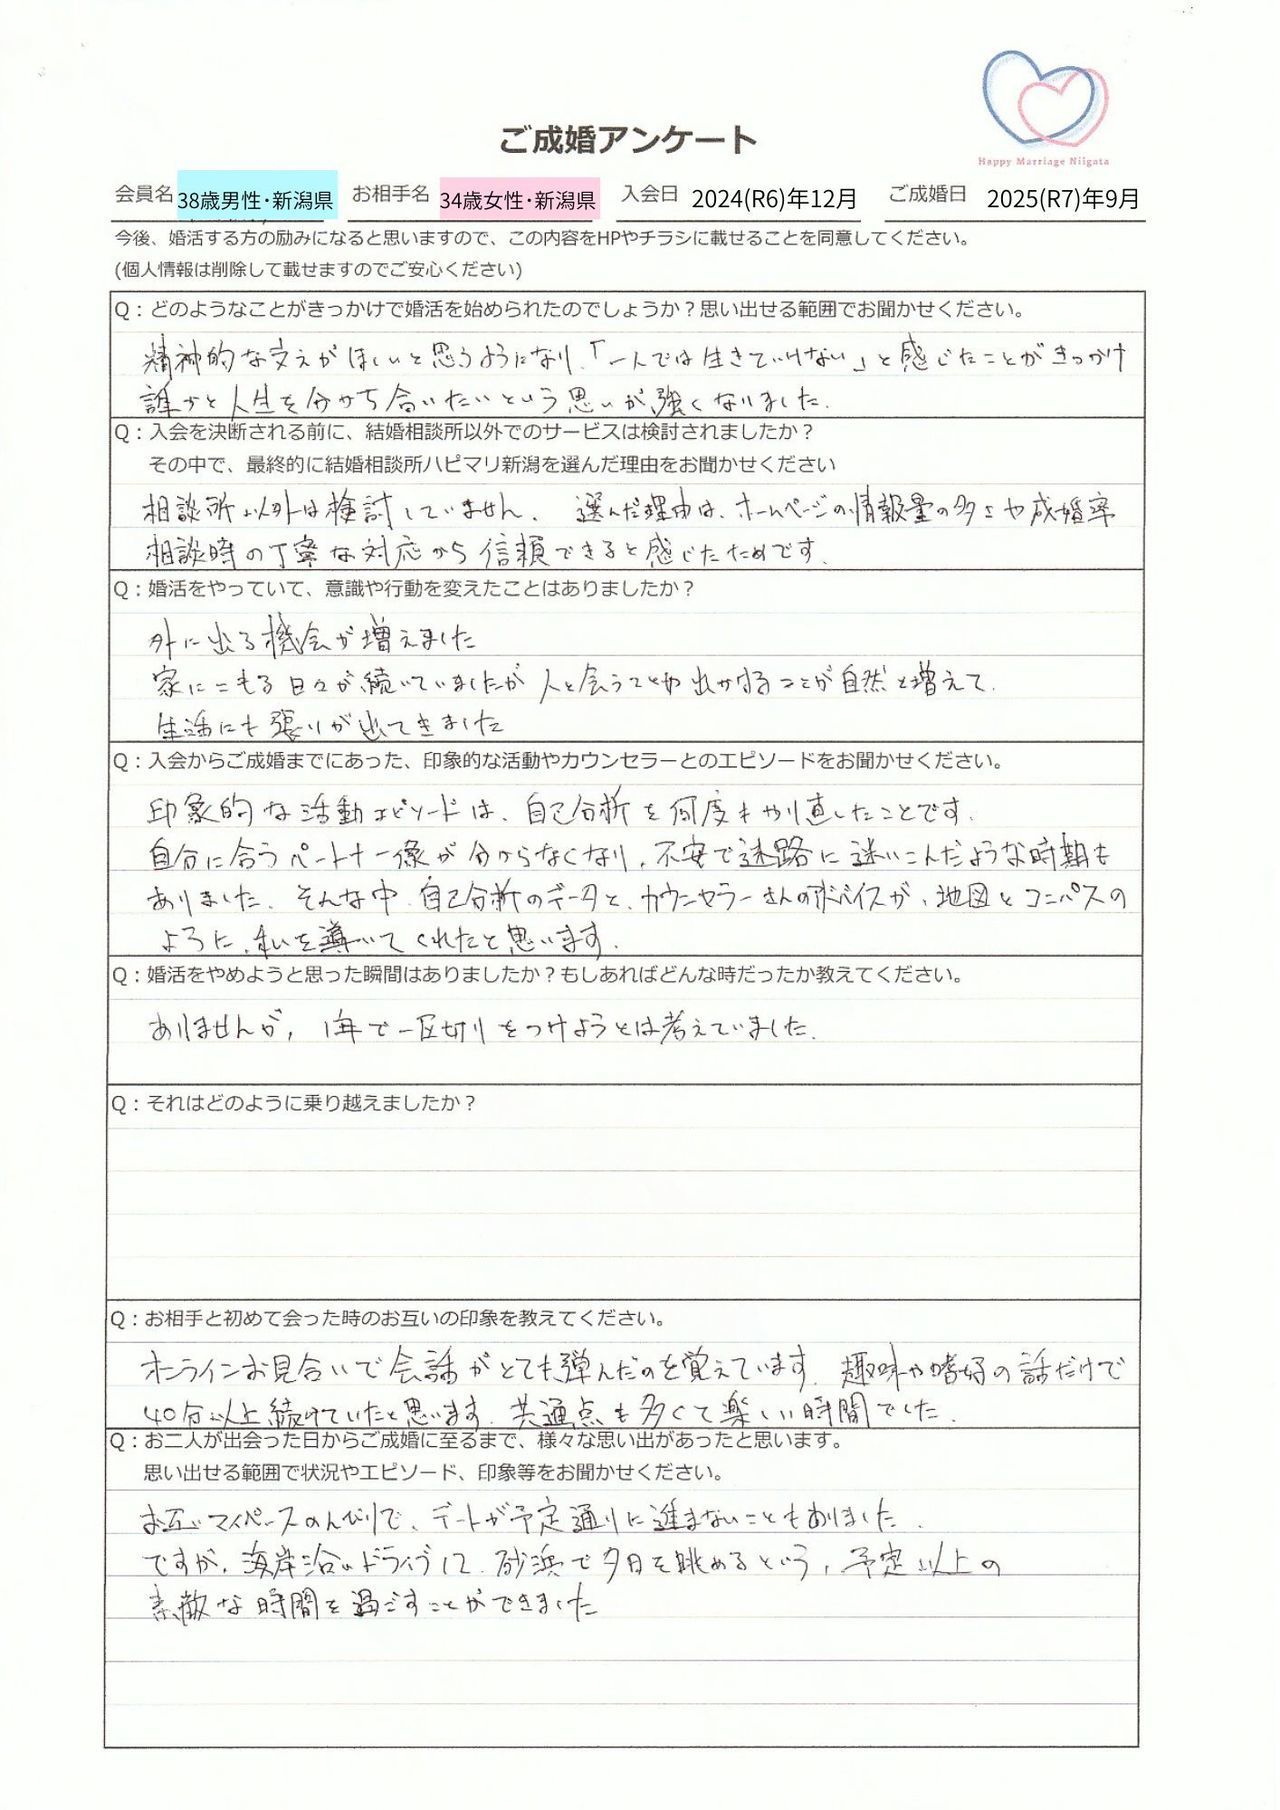 Happy Marriage Niigata
ご成婚アンケート
会員名 38歳男性・新潟県 お相手名 34歳女性・新潟県 入会日 2024(R6)年12月 ご成婚日 2025(R7)年9月
今後、婚活する方の励みになると思いますので、この内容をHPやチラシに載せることを同意してください。
(個人情報は削除して載せますのでご安心ください)
Q：どのようなことがきっかけで婚活を始められたのでしょうか？思い出せる範囲でお聞かせください。
精神的な支えがほしいと思うようになり、「一人では生きていけない」と感じたことがきっかけ
誰かと人生を分かち合いたいという思いが強くなりました。
Q：入会を決断される前に、結婚相談所以外でのサービスは検討されましたか？
その中で、最終的に結婚相談所ハピマリ新潟を選んだ理由をお聞かせください
相談所以外は検討していません。 選んだ理由は、ホームページの情報量の多さや成婚率
相談時の丁寧な対応から信頼できると感じたためです。
Q：婚活をやっていて、意識や行動を変えたことはありましたか？
外に出る機会が増えました
家にこもる日々が続いていましたが人と会うことや出かけることが自然と増えて、
生活にも張りが出てきました
Q：入会からご成婚までにあった、印象的な活動やカウンセラーとのエピソードをお聞かせください。
印象的な活動エピソードは、自己分析を何度もやり直したことです。
自分に合うパートナー像が分からなくなり、不安で迷路に迷いこんだような時期も
ありました。そんな中、自己分析のデータと、カウンセラーさんのアドバイスが、地図とコンパスの
ように、私を導いてくれたと思います。
Q：婚活をやめようと思った瞬間はありましたか？もしあればどんな時だったか教えてください。
ありませんが、1年で一区切りをつけようとは考えていました。
Q：それはどのように乗り越えましたか？
Q：お相手と初めて会った時のお互いの印象を教えてください。
オンラインお見合いで会話がとても弾んだのを覚えています。趣味や嗜好の話だけで
40分以上続けていたと思います。共通点も多くて楽しい時間でした。
Q：お二人が出会った日からご成婚に至るまで、様々な思い出があったと思います。
思い出せる範囲で状況やエピソード、印象等をお聞かせください。
お互いマイペースのんびりで、デートが予定通りに進まないこともありました。
ですが、海岸沿いドライブして、砂浜で夕日を眺めるという、予定以上の
素敵な時間を過ごすことができました